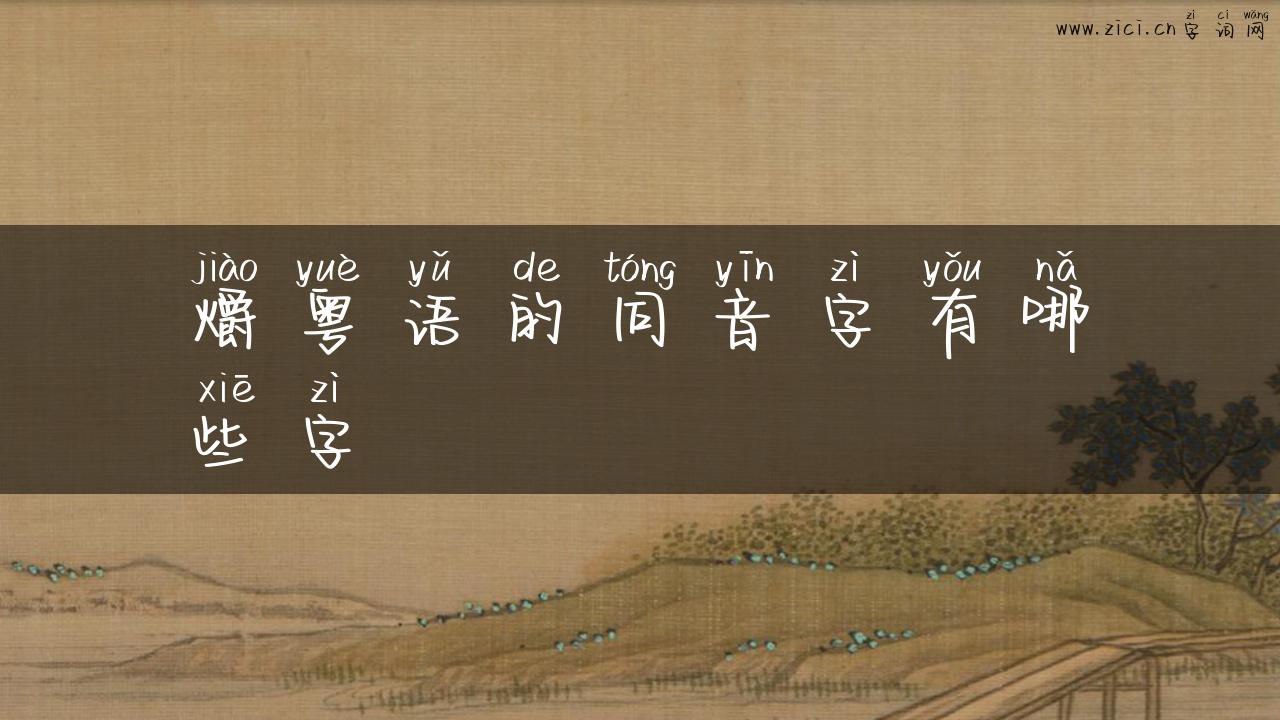 zì cí wǎng
www.zici.cn字词网
jiào yuè yǔ de tóng yīn zì yǒu nǎ
爝粤语的同音字有哪
xiē zì
些字